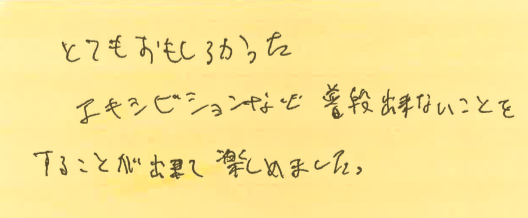 とてもおもしろかった
エキシビションなど 普段出来ないことを
することが出来て楽しめました。